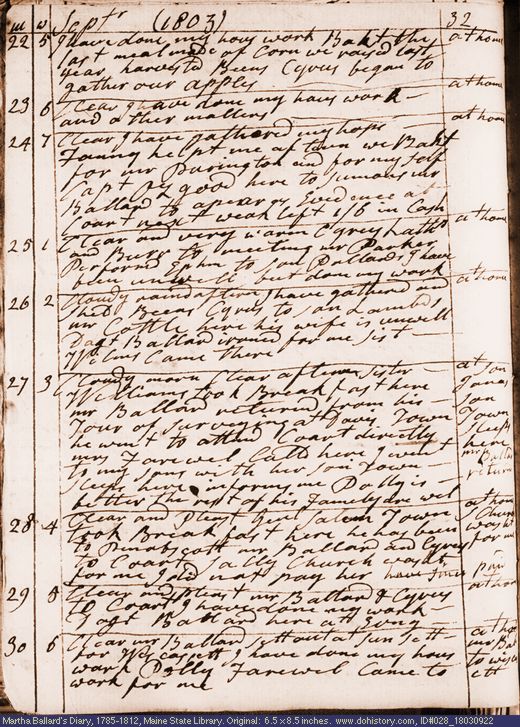 m w Septr (1803) 32
22 5 I have done my hous work Bakt the at home
last meal made of Corn we raisd last
year harvested Beens Cyrus began to
gather our apples
23 6 Clear I have done my hous work at home
and other matters
24 7 Clear I have gathered my hops at home
Fanny helpt me at town we Bakt
for mr Purington and for my self
Capt good here to sumons mr
Ballard to apear as Evidence at
Court next weak left 1/6 in Cash
25 1 Clear and very warm Cyrus hatt at home
and Burr to meeting mr Parker
Performd Ephm to son Pollards I have
been unwell but done my work
26 2 Cloudy raind after I have gathered and at home
shelld Beens Cyrus to son Lambds
mr Cottle here his wife is unwell
Dagt Ballard ironed for me sist
Wilms Came there
27 3 Cloudy morn Clear aftern sister at son
Williams took Breakfast here Jonas
mr Ballard returned from his son
Tour of surveying at Davis Town Town
he went to attend Court directly sleeps
mrs Farewel Calld here I went here
to my sons with her son Town mr Ballard
sleeps here informs me Dolly is return
better the rest of his Famely are wel
28 4 Clear and Pleast Genl Salem Towne at home
took Breakfast here he has been S Church
to Penobscott mr Ballard and Cyrus washt
to Court Sally Church washt for me
for me I did not pay her have since paid
29 5 Clear and pleast mr Ballard & Cyrus at home
to Court I have done my work
Dagt Ballard here at Evng
30 6 Clear mr Ballard sett out at sun sett at home
for I have done my hous mr Bal
work Dolly Farewel Came to to
work for me
Martha Ballard's Diary, 1785-1812, Maine State Library. Original: 6.5 x 8.5 inches. www.dohistory.org, ID#028_18030922